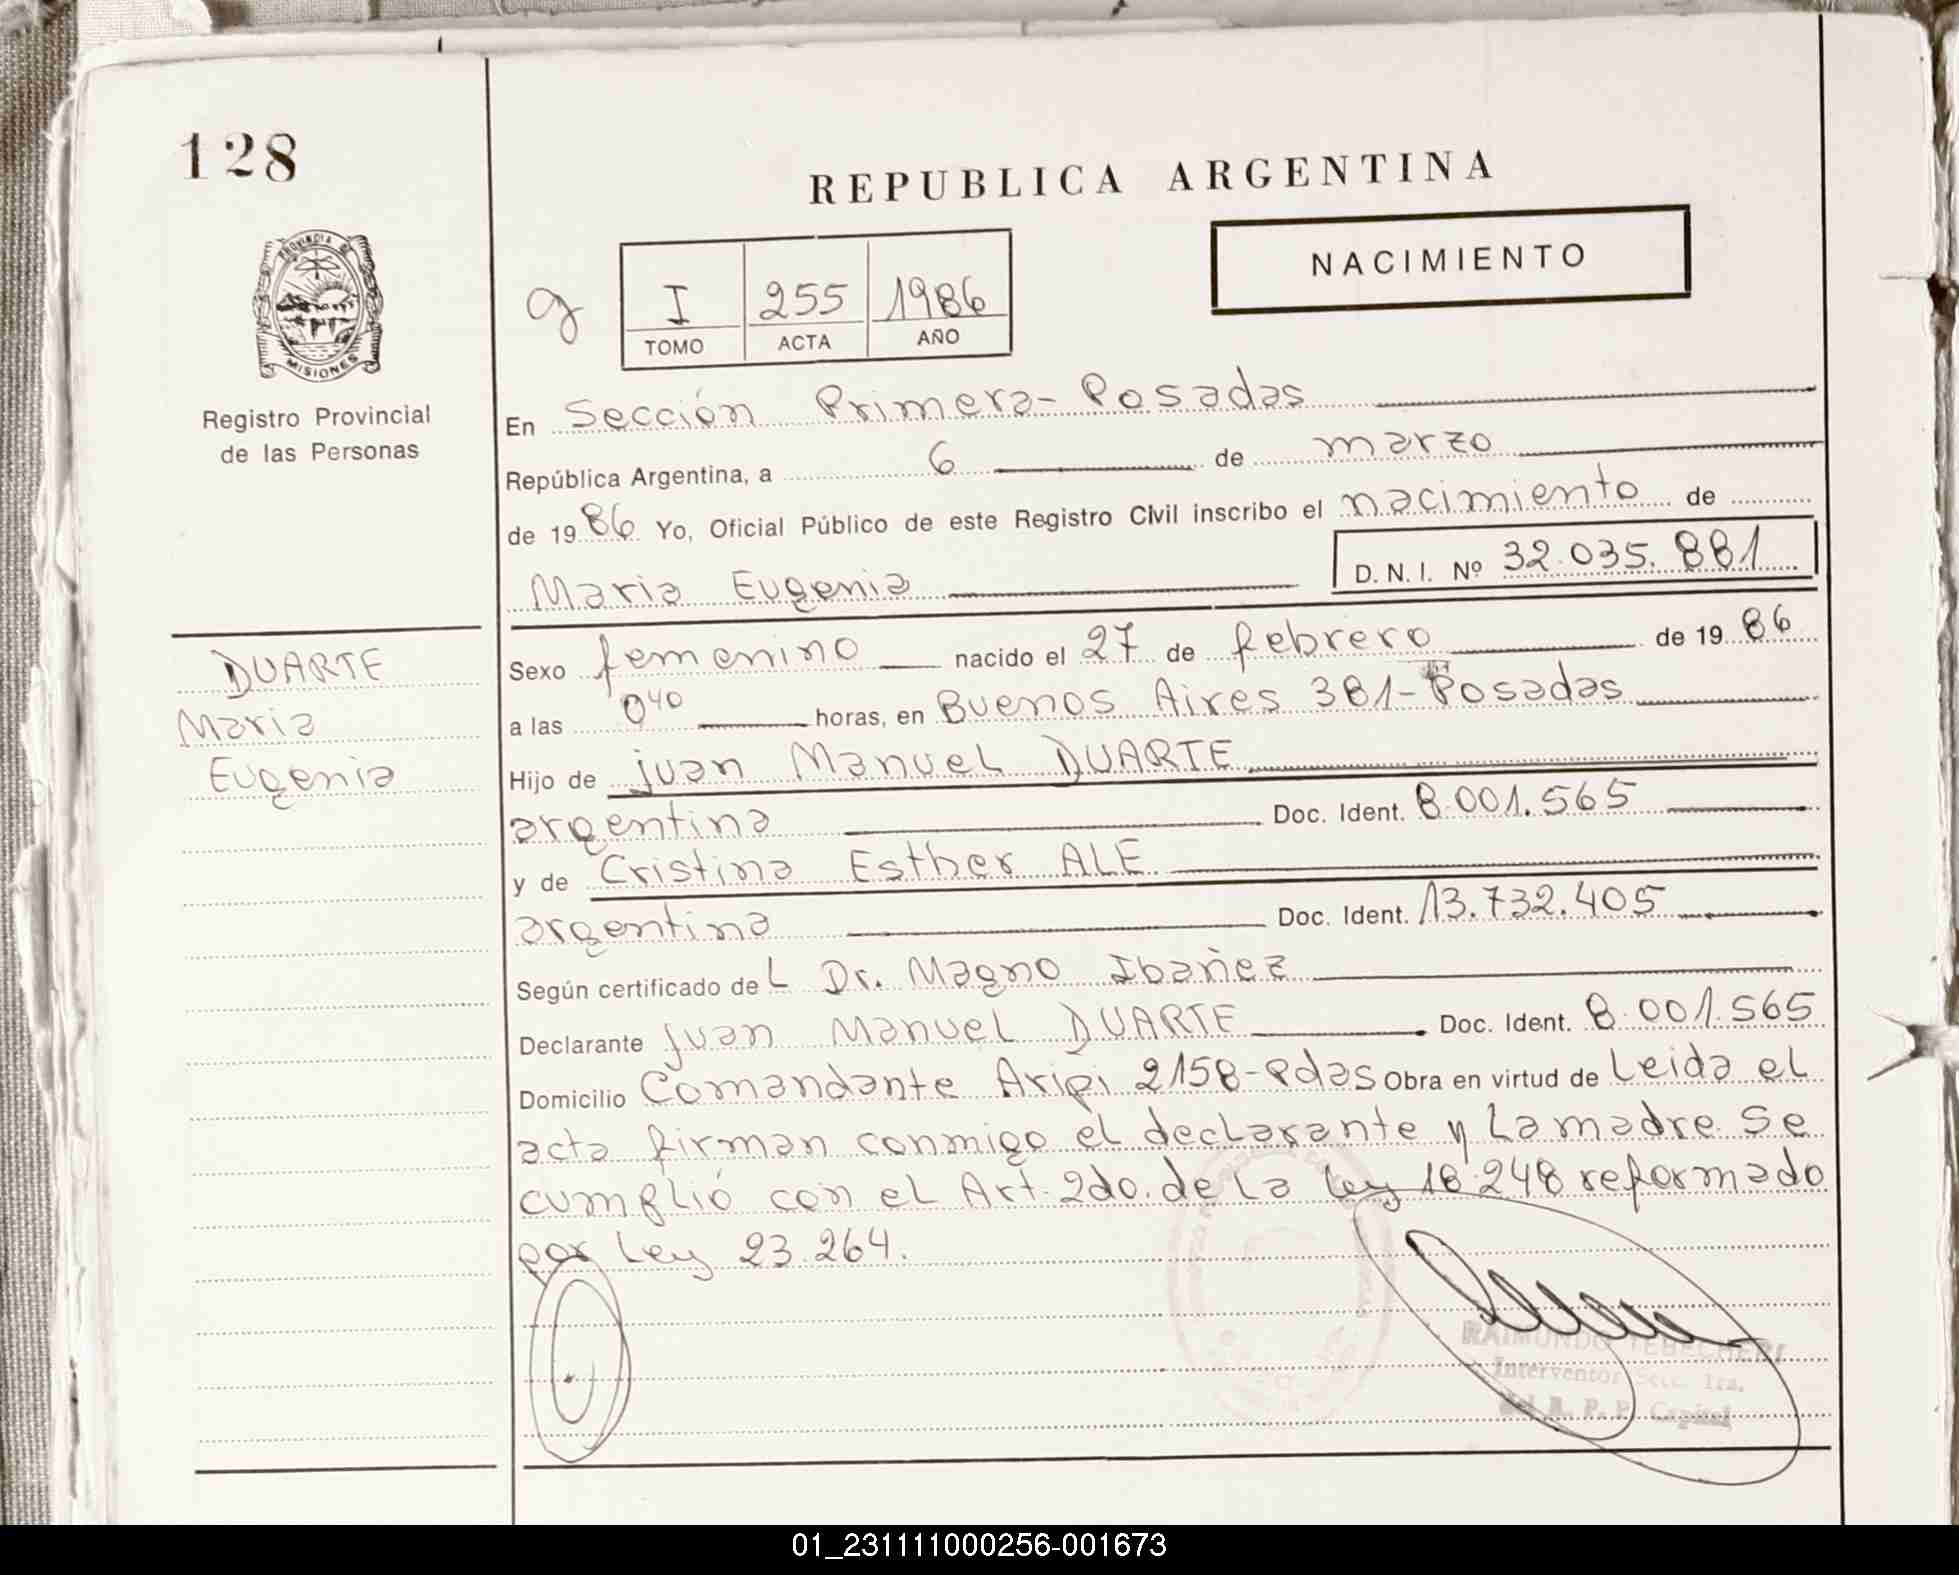 128
REPUBLICA ARGENTINA
NACIMIENTO
PROVINCIA DE
MISIONES
I 255 1986
TOMO ACTA AÑO
Registro Provincial
de las Personas
En Sección Primera - Posadas
República Argentina, a 6 de marzo
de 1986 Yo, Oficial Público de este Registro Civil inscribo el nacimiento de
Maria Eugenia D.N.I. Nº 32.035.881
DUARTE
Maria
Eugenia
Sexo femenino nacido el 27 de febrero de 1986
a las 0 40 horas, en Buenos Aires 381 - Posadas
Hijo de Juan Manuel DUARTE
argentina Doc. Ident. 8.001.565
y de Cristina Esther ALE
argentina Doc. Ident. 13.732.405
Según certificado del Dr. Magno Ibañez
Declarante Juan Manuel DUARTE Doc. Ident. 8.001.565
Domicilio Comandante Aripi 2158 - Pdas Obra en virtud de Leida el
acta firman conmigo el declarante y La madre se
cumplió con el Art. 2do. de la Ley 18.248 reformado
por Ley 23.264.
RAIMUNDO
Interventor Secc. 1ra.
del R. P. P. Capital
01_231111000256-001673